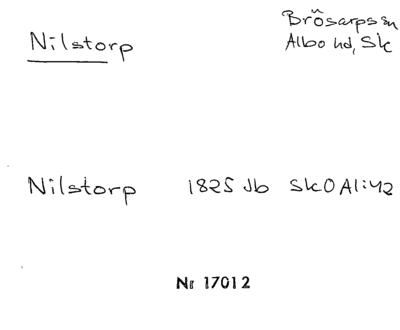 Nilstorp
Brösarps sn
Albo hd, Sk
Nilstorp 1825 Jb SkO Al:42
Nr 17012